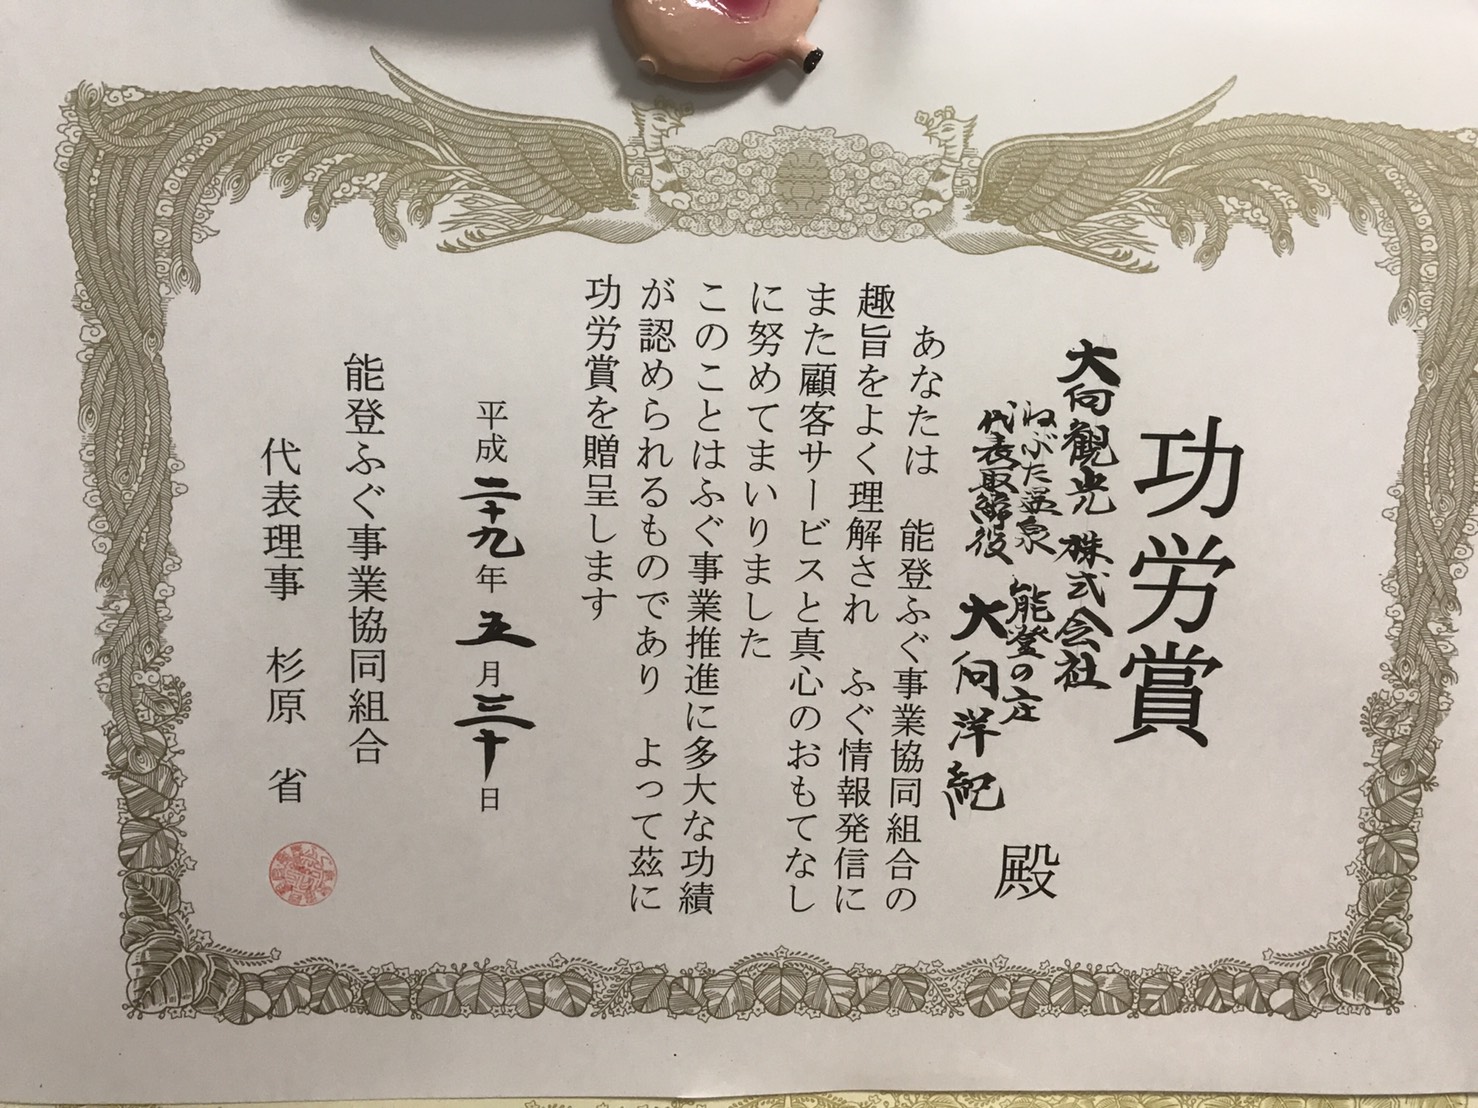 功労賞
大向観光 株式会社
ねぶた温泉 能登の庄
代表取締役 大向洋紀 殿
あなたは 能登ふぐ事業協同組合の
趣旨をよく理解され ふぐ情報発信に
また顧客サービスと真心のおもてなし
に努めてまいりました
このことはふぐ事業推進に多大な功績
が認められるものであり よって茲に
功労賞を贈呈します
平成二十九年五月三十日
能登ふぐ事業協同組合
代表理事 杉原 省